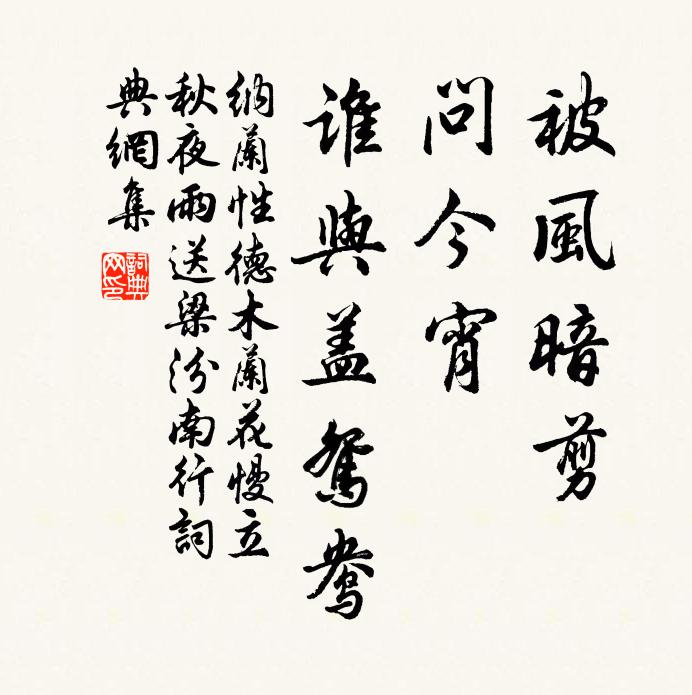 被風暗剪
問今宵
誰與蓋鴛鴦
納蘭性德木蘭花慢立
秋夜雨送梁汾南行詞
典網集
詞典
网印